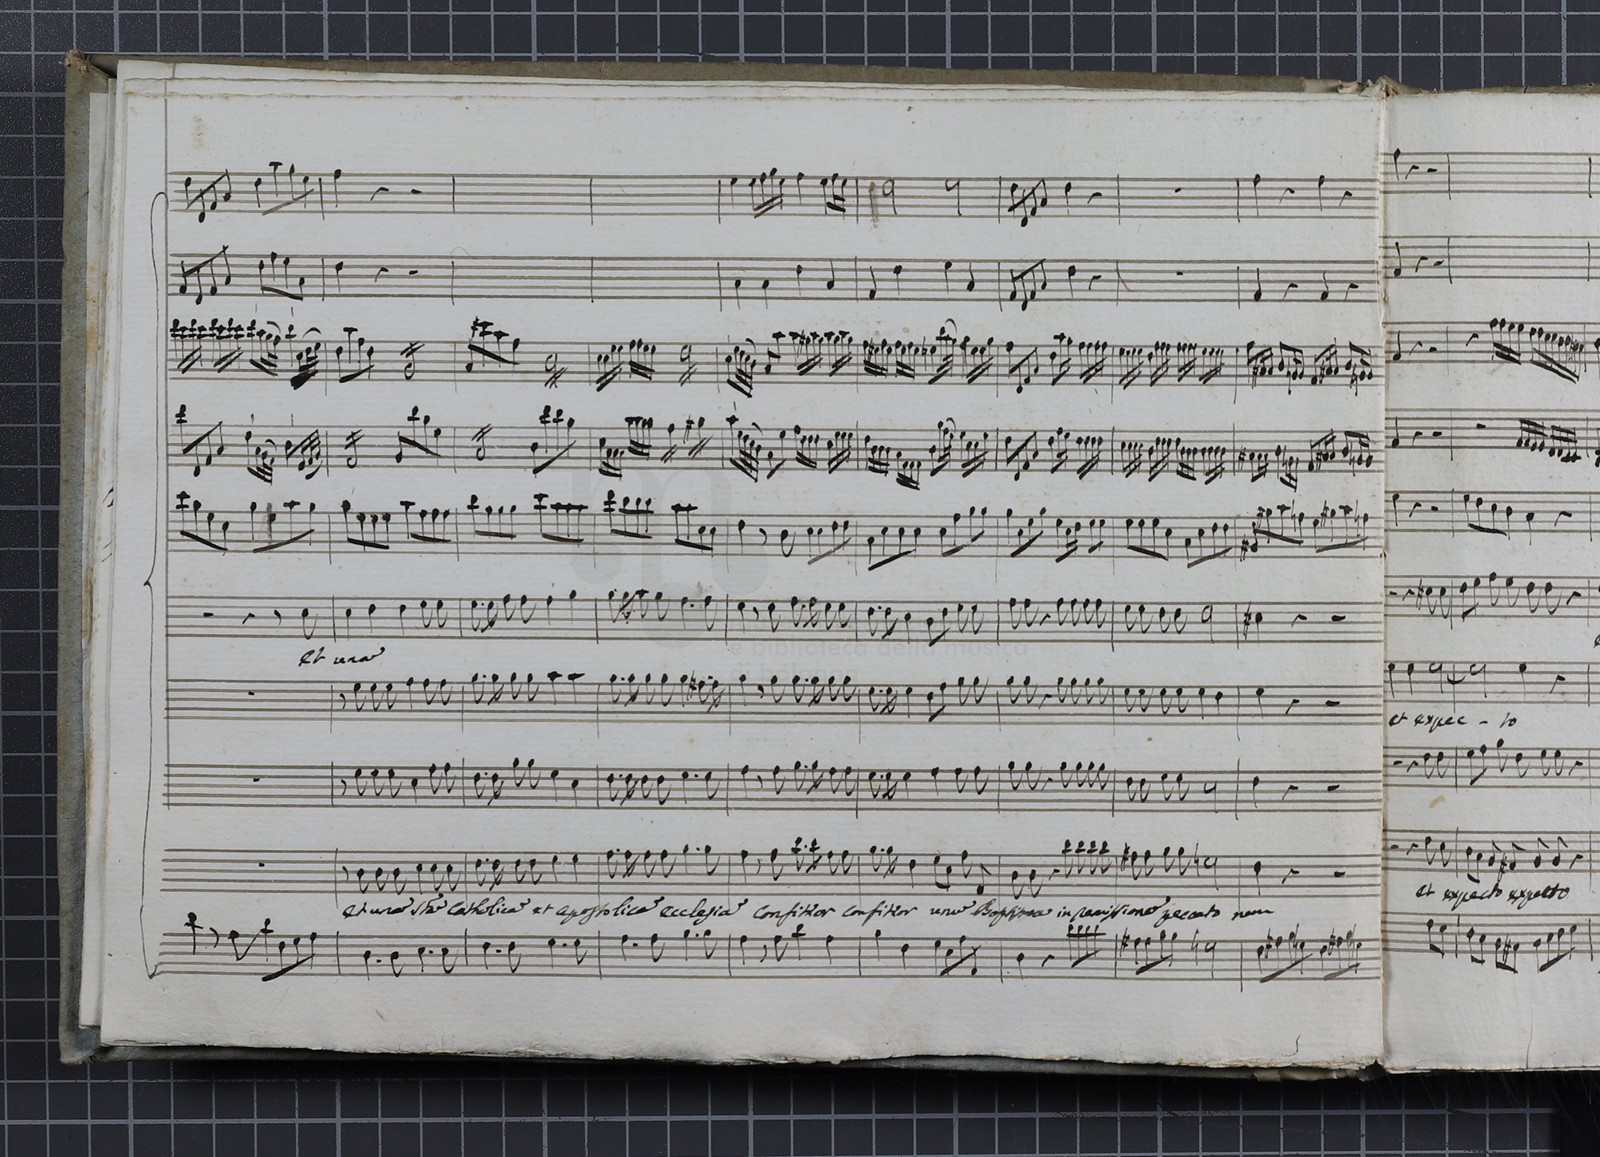 et una
et una Sta Catholica et apostolica ecclesia Confitior Confitior unu Baptisma in remissione peccato rum
et expec - to
et expecto expecto
e biblioteca della musica
di bologna